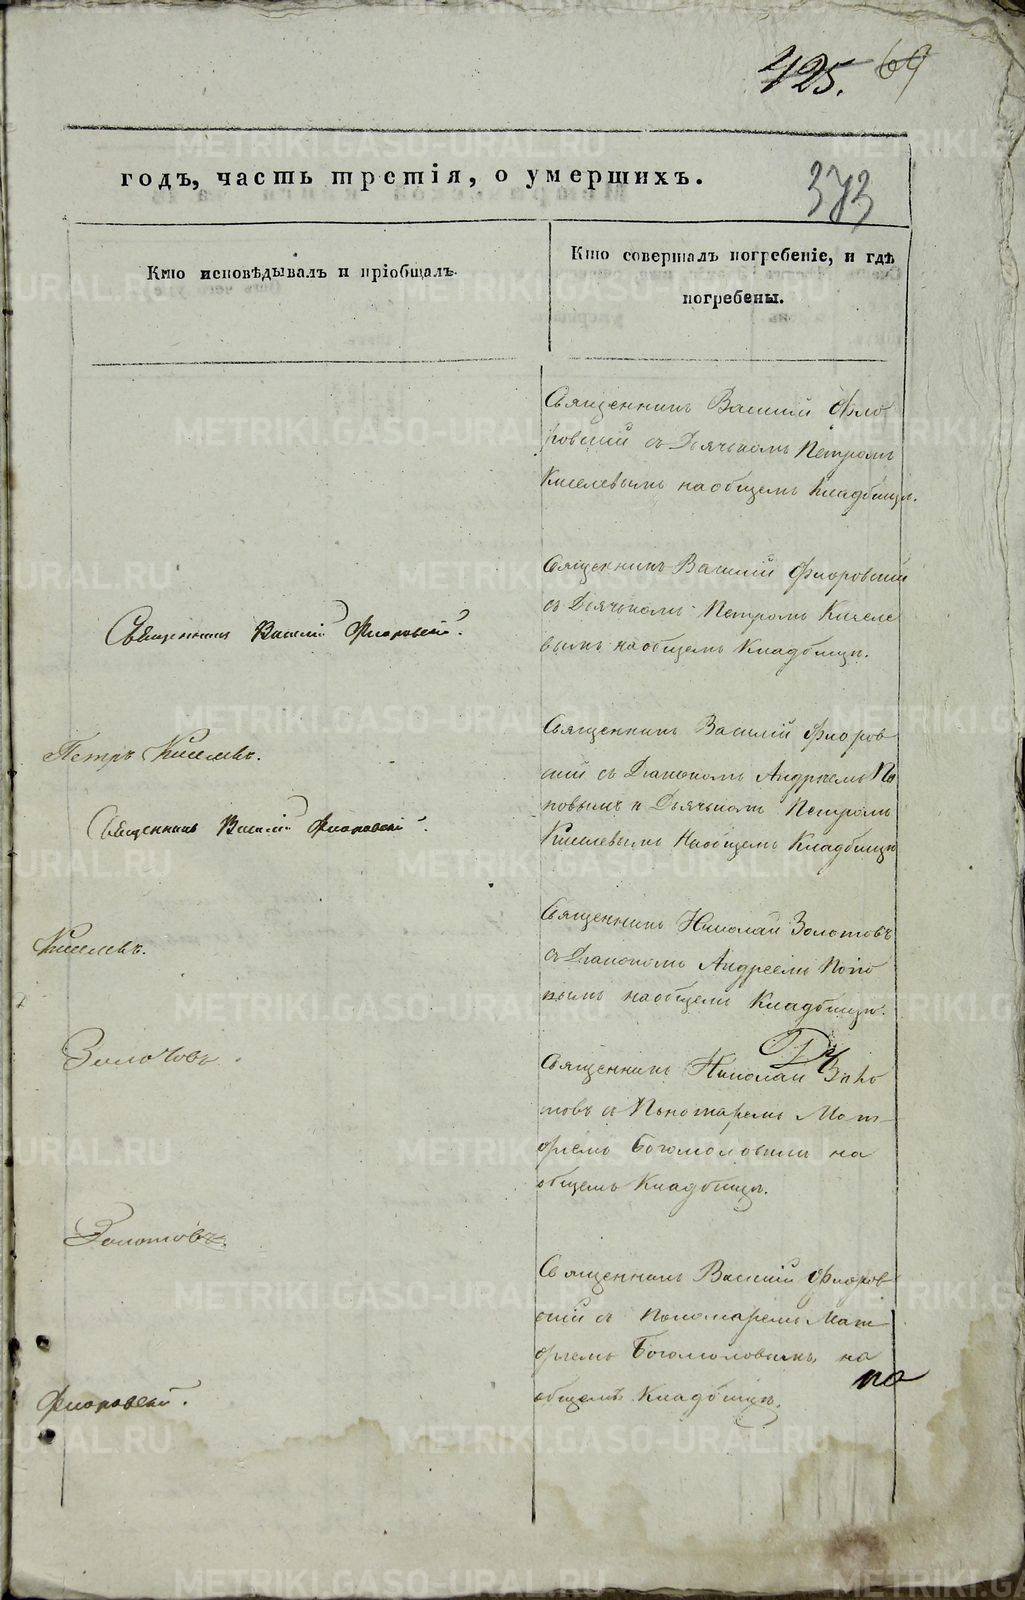 425. 69
годъ, часть третія, о умершихъ.
373
Кто исповѣдывалъ и пріобщалъ.
Кто совершалъ погребеніе, и гдѣ
погребены.
Священникъ Василій Фло
ровскій съ Дьячькомъ Петромъ
Киселевымъ на общемъ Кладбищѣ.
Священникъ Василій Флоровскій.
Священникъ Василій Флоровскій
съ Дьячькомъ Петромъ Киселе
вымъ на общемъ Кладбищѣ.
Петръ Киселевъ.
Священникъ Василій Флоровскій.
Священникъ Василій Флоров
скій съ Діакономъ Андреемъ По
повымъ и Дьячькомъ Петромъ
Киселевымъ На общемъ Кладбищѣ
Киселевъ.
Священникъ Николай Золотовъ
съ Діакономъ Андреемъ Попо
вымъ на общемъ Кладбищѣ.
Золотовъ.
Священникъ Николай Золо
товъ съ Пономаремъ Мат
фіемъ Богомоловымъ на
общемъ Кладбищѣ.
Золотовъ.
Священникъ Василій Флоров
скій съ Пономаремъ Мат
фіемъ Богомоловымъ на
общемъ Кладбищѣ.
по
Флоровскій.
METRIKI.GASO-URAL.RU